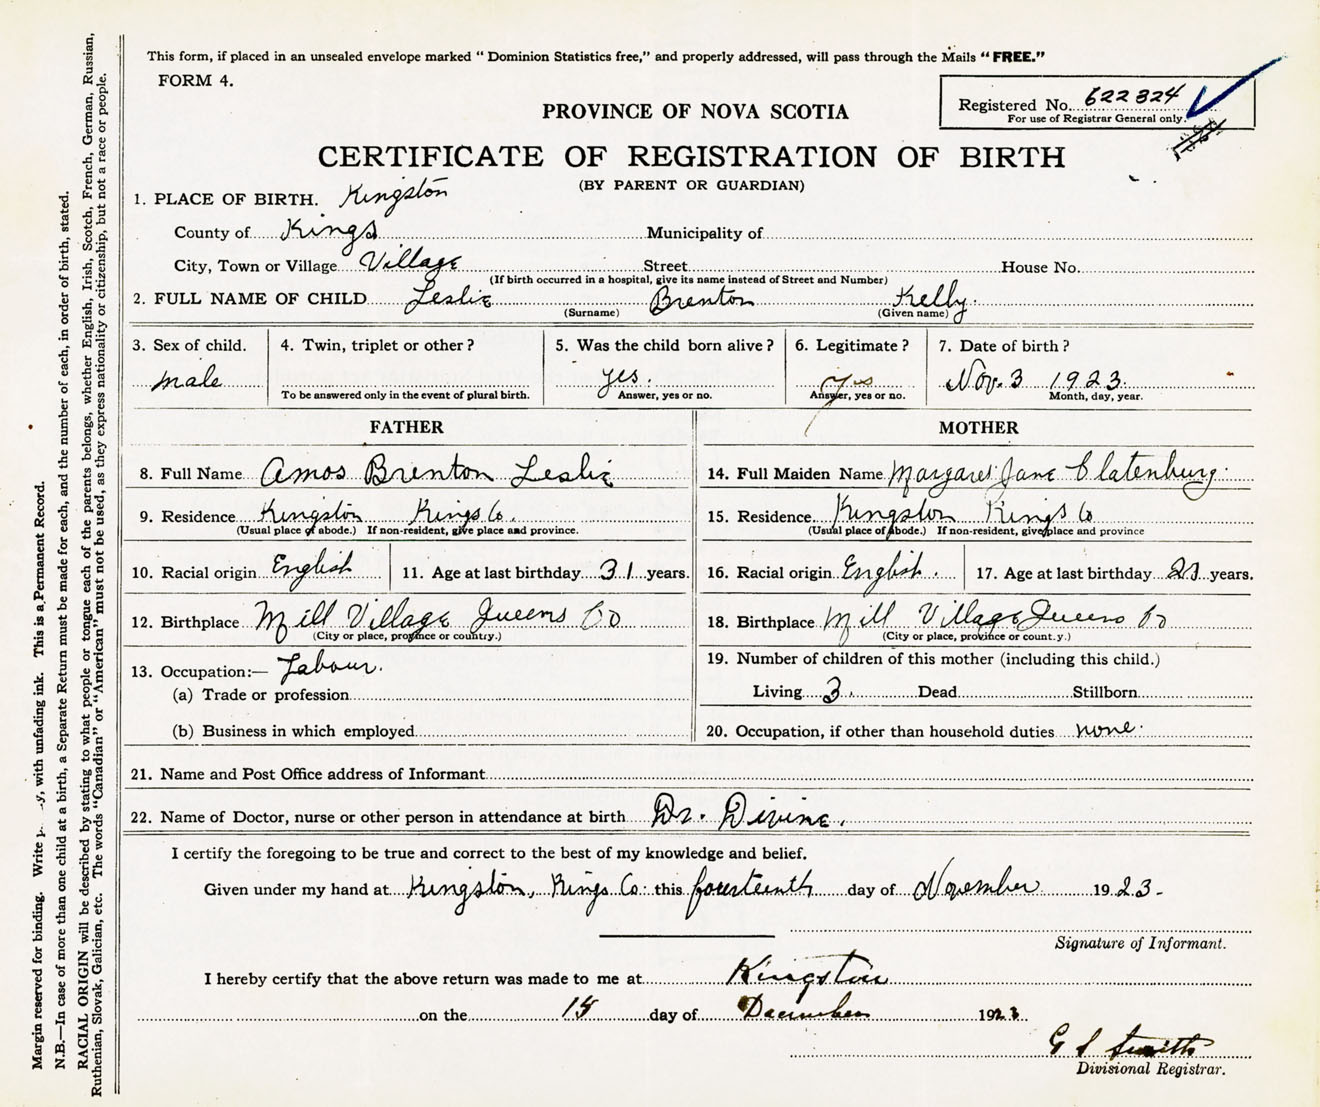 This form, if placed in an unsealed envelope marked “ Dominion Statistics free,” and properly addressed, will pass through the Mails “ FREE.”
FORM 4.
Registered No. 622324
For use of Registrar General only.
PROVINCE OF NOVA SCOTIA
CERTIFICATE OF REGISTRATION OF BIRTH
(BY PARENT OR GUARDIAN)
1. PLACE OF BIRTH. Kingston
County of Kings Municipality of
City, Town or Village Village Street House No.
(If birth occurred in a hospital, give its name instead of Street and Number)
2. FULL NAME OF CHILD Leslie Brenton Kelly.
(Surname) (Given name)
3. Sex of child. 4. Twin, triplet or other? 5. Was the child born alive? 6. Legitimate? 7. Date of birth?
male yes. yes Nov. 3 1923.
To be answered only in the event of plural birth. Answer, yes or no. Answer, yes or no. Month, day, year.
FATHER MOTHER
8. Full Name Amos Brenton Leslie 14. Full Maiden Name Margaret Jane Clatenburg.
9. Residence Kingston Kings Co. 15. Residence Kingston Kings Co
(Usual place of abode.) If non-resident, give place and province. (Usual place of abode.) If non-resident, give place and province
10. Racial origin English 11. Age at last birthday 31 years. 16. Racial origin English. 17. Age at last birthday 23 years.
12. Birthplace Mill Village Queens Co 18. Birthplace Mill Village Queens Co
(City or place, province or country.) (City or place, province or count.y.)
13. Occupation:— Labour. 19. Number of children of this mother (including this child.)
(a) Trade or profession Living 3. Dead Stillborn
(b) Business in which employed 20. Occupation, if other than household duties none.
21. Name and Post Office address of Informant
22. Name of Doctor, nurse or other person in attendance at birth Dr. Divine.
I certify the foregoing to be true and correct to the best of my knowledge and belief.
Given under my hand at Kingston, Kings Co. this fourteenth day of November 1923.
Signature of Informant.
I hereby certify that the above return was made to me at Kingston
on the 15 day of December 1923
G S Smith
Divisional Registrar.
Margin reserved for binding. Write with unfading ink. This is a Permanent Record.
N.B.—In case of more than one child at a birth, a Separate Return must be made for each, and the number of each, in order of birth, stated.
RACIAL ORIGIN will be described by stating to what people or tongue each of the parents belongs, whether English, Irish, Scotch, French, German, Russian,
Ruthenian, Slovak, Galician, etc. The words “Canadian” or “American” must not be used, as they express nationality or citizenship, but not a race or people.